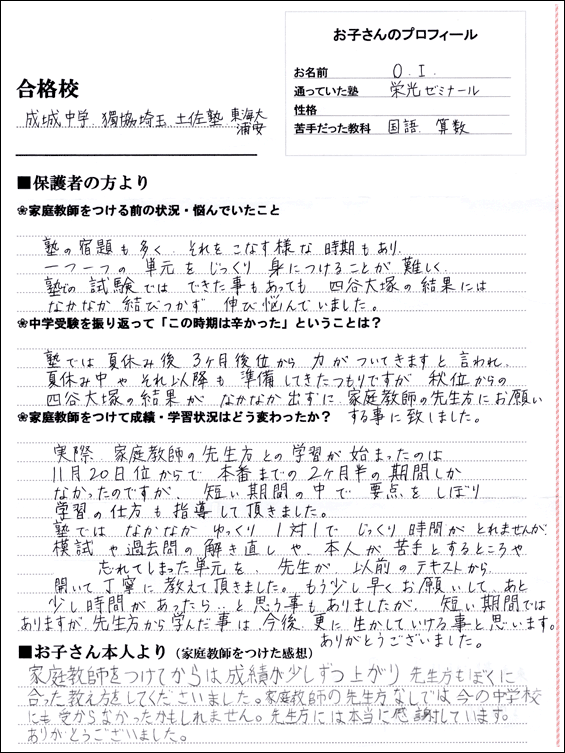 お子さんのプロフィール
お名前 O.I.
通っていた塾 栄光ゼミナール
性格
苦手だった教科 国語、算数
合格校
成城中学、獨協埼玉、土佐塾、東海大浦安
■保護者の方より
❀家庭教師をつける前の状況・悩んでいたこと
塾の宿題も多く、それをこなす様な時期もあり、
一つ一つの単元をじっくり身につけることが難しく、
塾での試験ではできた事もあっても四谷大塚の結果には
なかなか結びつかず伸び悩んでいました。
❀中学受験を振り返って「この時期は辛かった」ということは？
塾では夏休み後3ヶ月後位から力がついてきますと言われ、
夏休み中やそれ以降も準備してきたつもりですが秋位からの
四谷大塚の結果がなかなか出ずに家庭教師の先生方にお願い
する事に致しました。
❀家庭教師をつけて成績・学習状況はどう変わったか？
実際、家庭教師の先生方との学習が始まったのは
11月20日位からで本番までの2ヶ月半の期間しか
なかったのですが、短い期間の中で要点をしぼり
学習の仕方も指導して頂きました。
塾ではなかなかゆっくり1対1でじっくり時間がとれませんが、
模試や過去問の解き直しや、本人が苦手とするところや
忘れてしまった単元を、先生が、以前のテキストから
開いて丁寧に教えて頂きました。もう少し早くお願いして、あと
少し時間があったら‥と思う事もありましたが、短い期間では
ありますが、先生方から学んだ事は今後、更に生かしていける事と思います。
ありがとうございました。
■お子さん本人より（家庭教師をつけた感想）
家庭教師をつけてからは成績が少しずつ上がり先生方もぼくに
合った教え方をしてくださいました。家庭教師の先生方なしでは、今の中学校
にも受からなかったかもしれません。先生方には本当に感謝しています。
ありがとうございました。